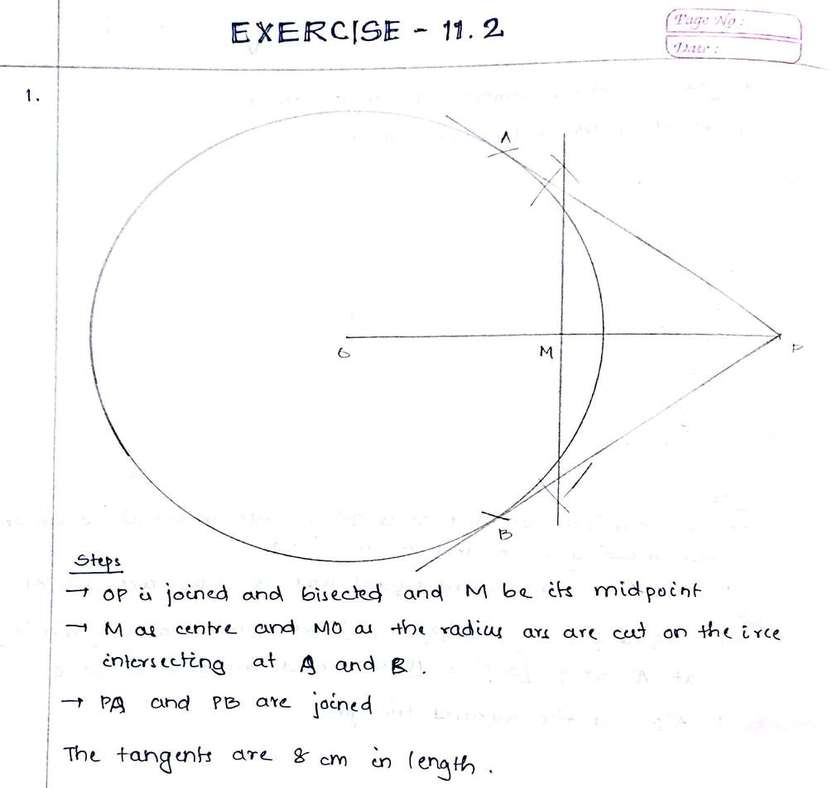 EXERCISE - 11.2
Page No :
Date :
1.
A
O
M
P
B
Steps
→ OP is joined and bisected and M be its midpoint
→ M as centre and MO as the radius ars are cut on the irce
intersecting at A and B.
→ PA and PB are joined
The tangents are 8 cm in length.